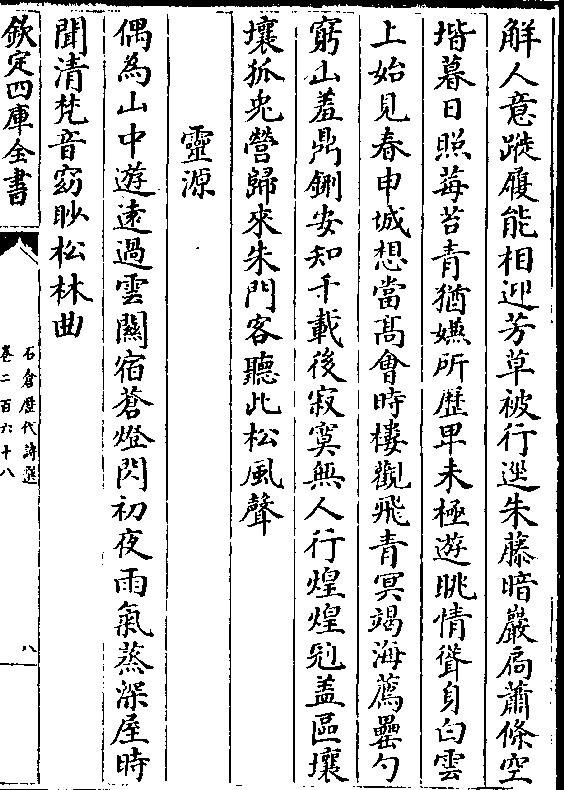 觧人意蹝履能相迎芳草被行逕朱藤暗巖扃蕭條空
堦暮日照莓苔青猶嫌所歴卑未極遊眺情聳身白雲
上始見春申城想當髙會時樓觀飛青㝠竭海薦罍勺
窮山羞鼎鉶安知千載後寂寞無人行煌煌冠盖區壤
壤狐兎營歸來朱門客聽此松風聲
靈源
偶為山中遊逺過雲關宿蒼燈閃初夜雨氣蒸深屋時
聞清梵音窈眇松林曲
欽定四庫全書
石倉歴代詩選
卷二百六十八
八